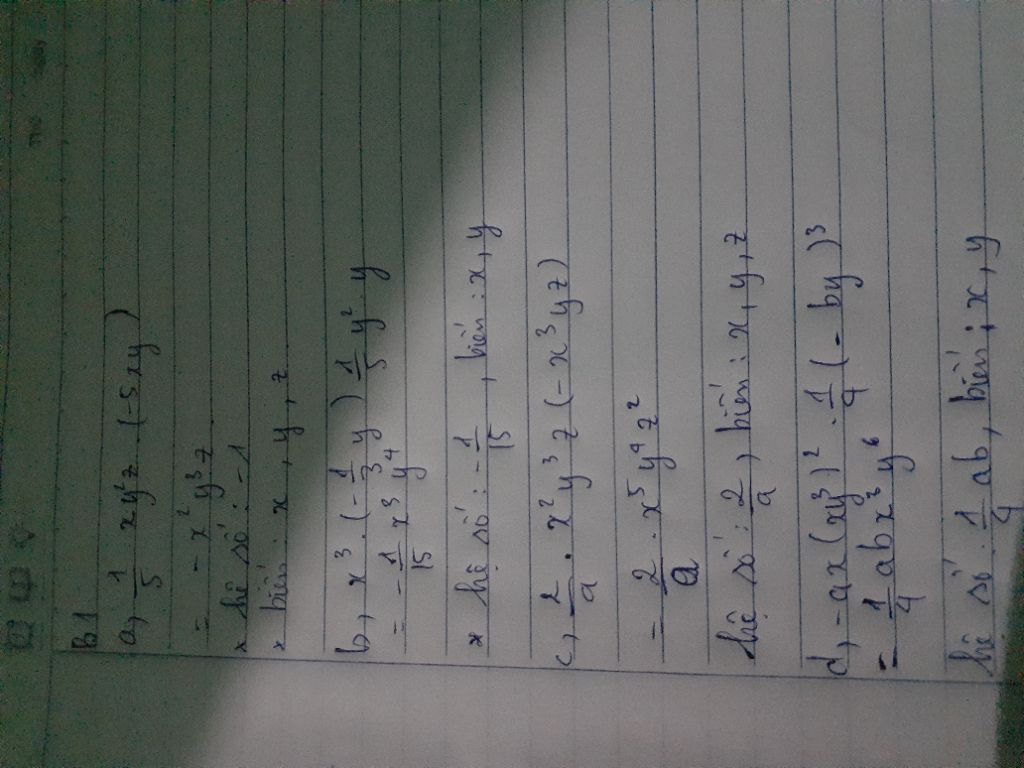 B1
a, 1/5 xy²z . (-5xy)
= - x²y³z
* hệ số : -1
* biến : x, y, z
b, x³ . (- 1/3 y) 1/5 y² . y
= - 1/15 x³ y⁴
* hệ số : - 1/15 , biến : x, y
c, 2/a . x² y³ z (- x³ yz)
= 2/a . x⁵ y⁴ z²
hệ số : 2/a , biến : x, y, z
d, - ax (xy³)² . 1/4 (- by)³
= 1/4 abx³ y⁶
hệ số : 1/4 ab, biến ; x, y